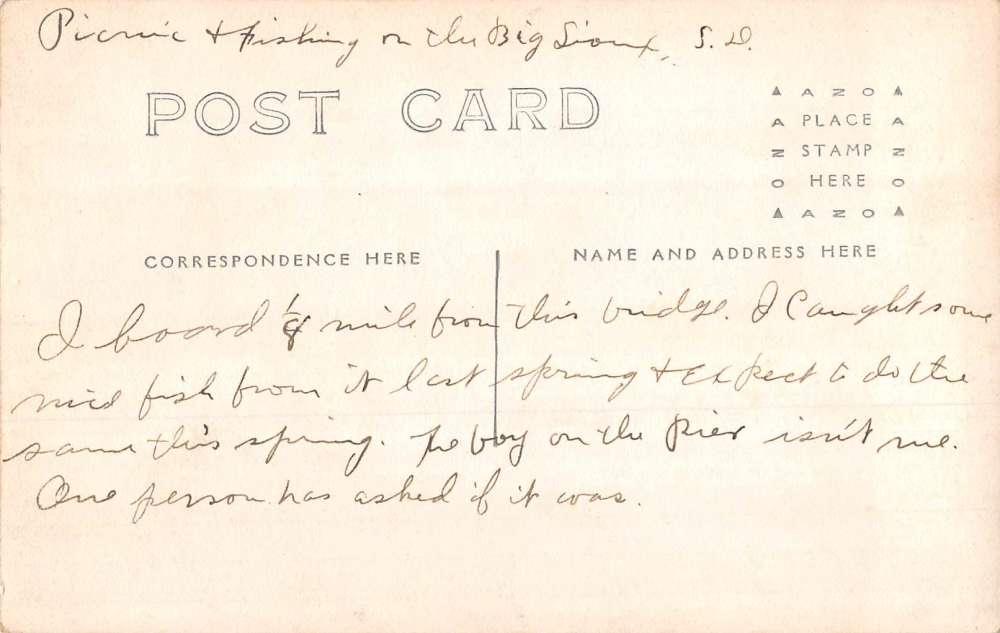 Picnic & Fishing on the Big Sioux, S. D.
POST CARD
▲ A Z O ▲
A PLACE A
Z STAMP Z
O HERE O
▲ A Z O ▲
CORRESPONDENCE HERE
NAME AND ADDRESS HERE
I board 1/8 mile from this bridge. I Caught some
nice fish from it last spring & expect to do the
same this spring. The boy on the Pier isn't me.
One person has asked if it was.